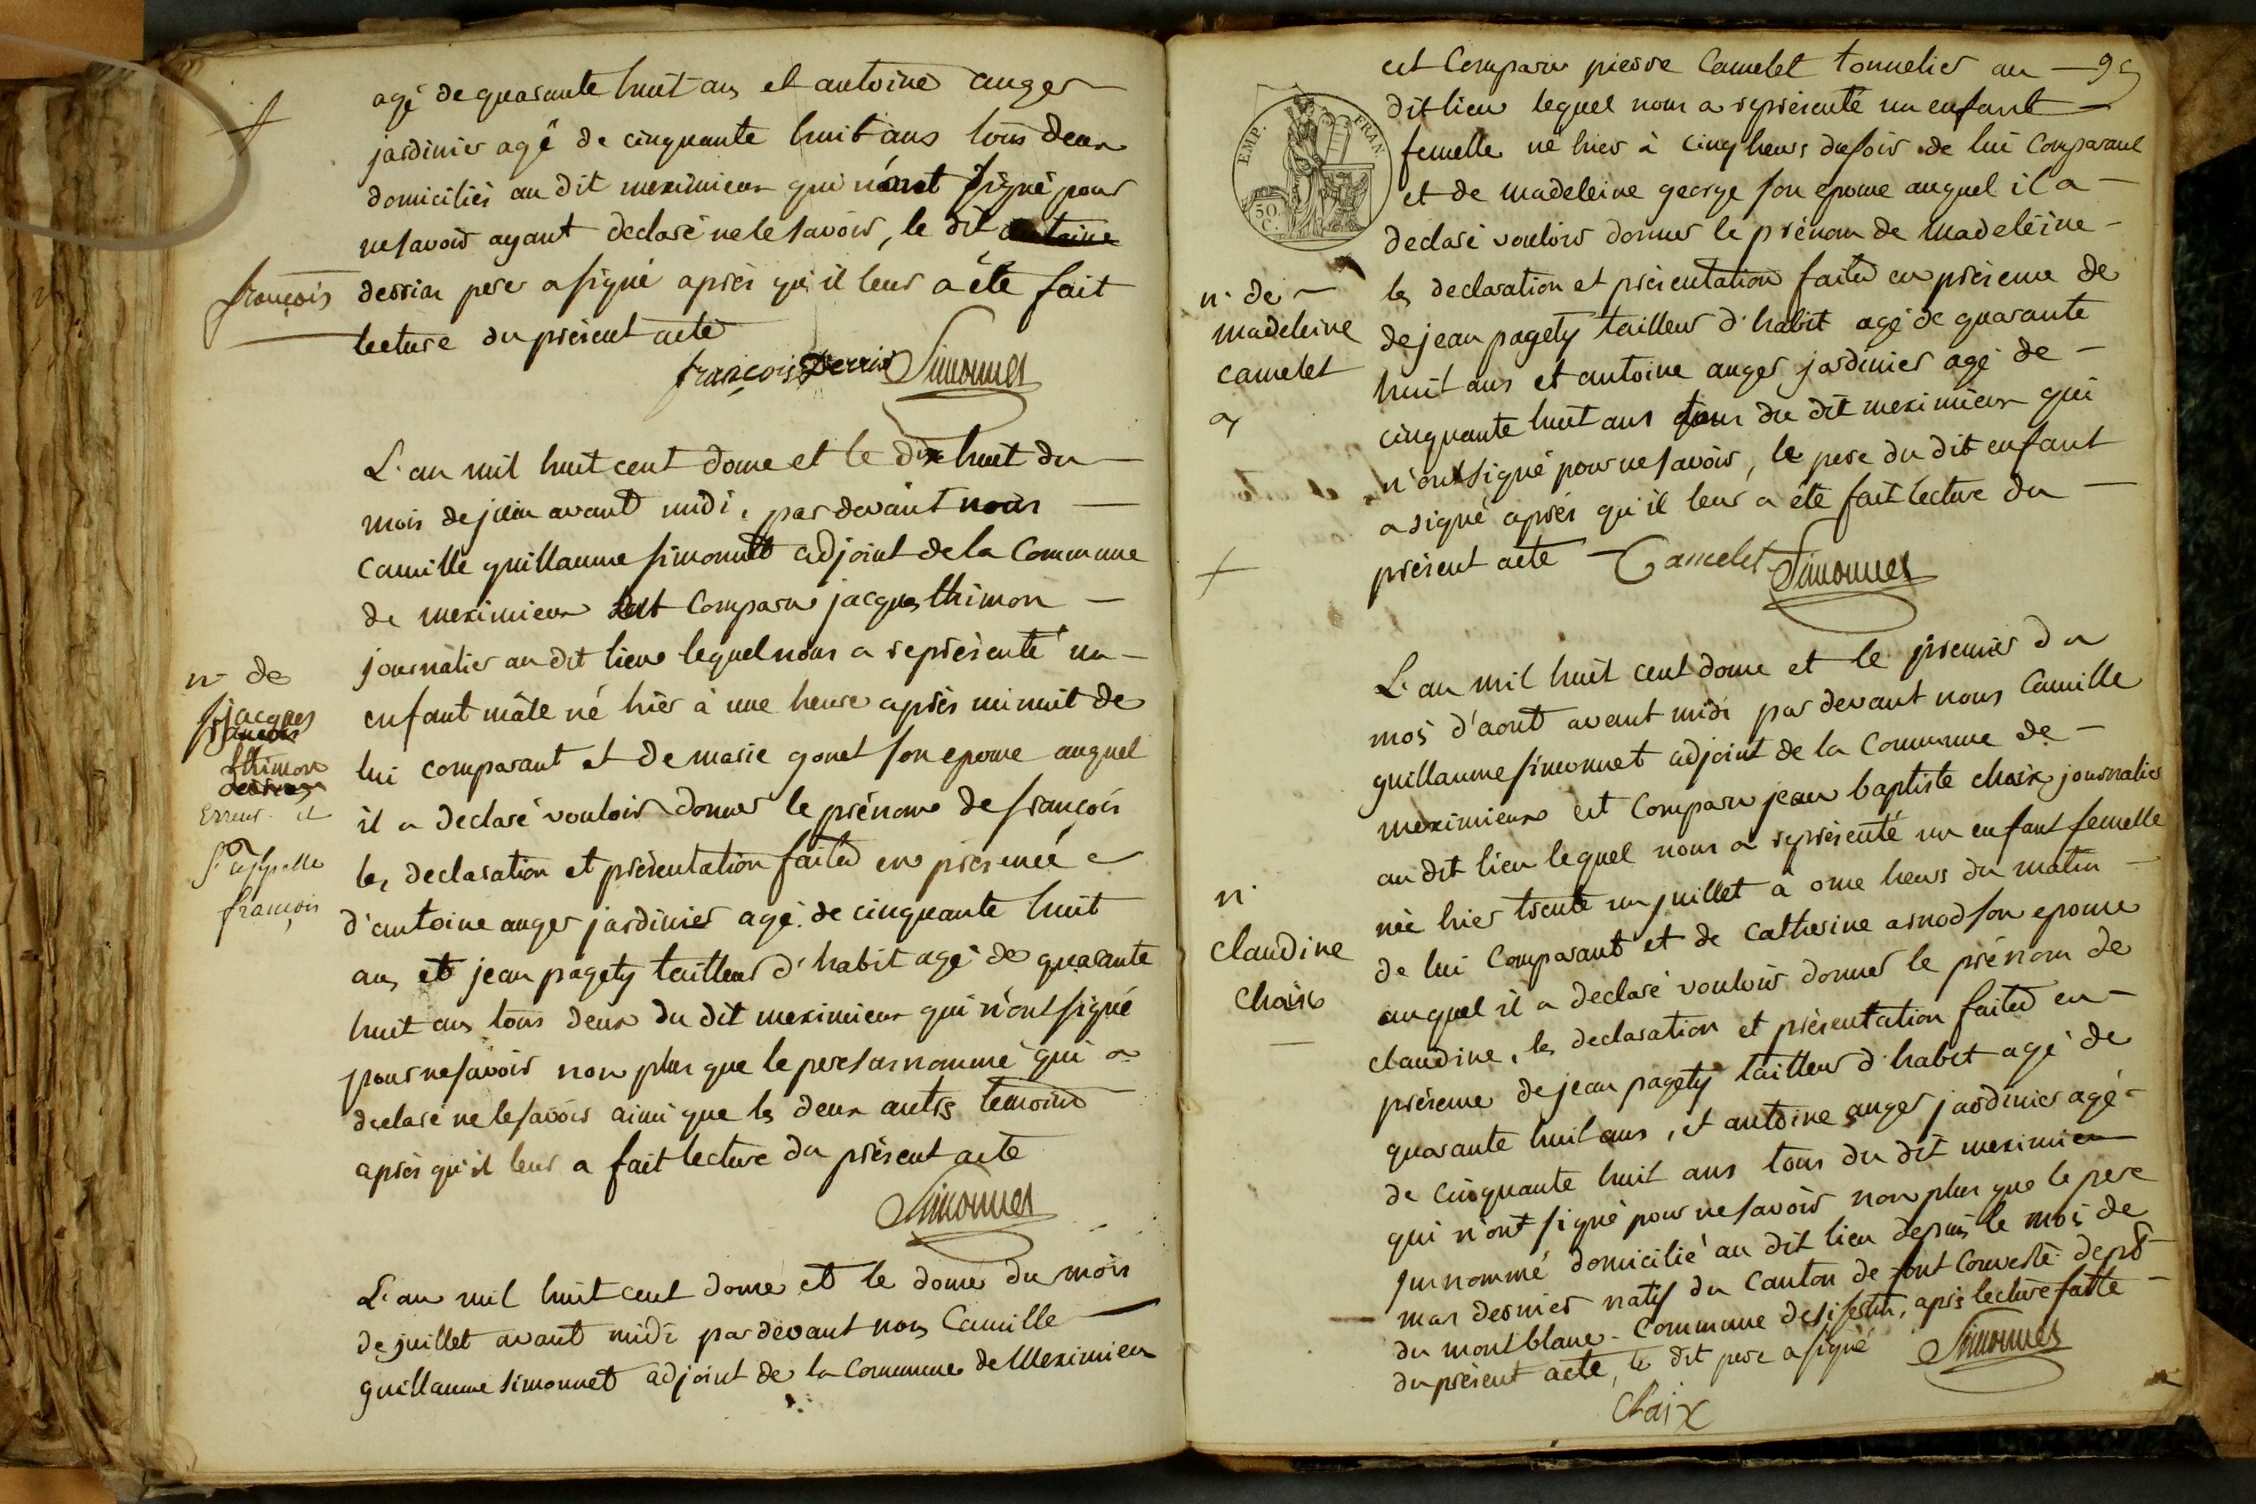 agé de quarante huit ans et antoine auger
jardinier agé de cinquante huit ans tous deux
domiciliés au dit meximieux qui n'ont signé pour
ne savoir ayant declaré ne le savoir, le dit antoine
françois
derrias pere a signé après qu'il leur a été fait
lecture du présent acte
françois Derrias Simonnet
L'an mil huit cent douze et le dix huit du
mois de juin avant midi, par devant nous
Camille guillaume simonnet adjoint de la Commune
de meximieux est Comparu jacques thimon
journalier au dit lieu lequel nous a représenté un
enfant mâle né hier à une heure après minuit de
lui comparant et de marie gonet son epouse auquel
il a declaré vouloir donner le prénom de françois
les declaration et présentation faites en présence
d'antoine auger jardinier agé de cinquante huit
ans et jean pagety tailleur d'habit agé de quarante
huit ans tous deux du dit meximieux qui n'ont signé
pour ne savoir non plus que le pere surnommé qui a
declaré ne le savoir ainsi que les deux autres temoins
après qu'il leur a fait lecture du présent acte
Simonnet
n de
jacques
thimon
Erreur il
s'appelle
françois
L'an mil huit cent douze et le douze du mois
de juillet avant midi par devant nous Camille
guillaume simonnet adjoint de la Commune de Meximieux
95
est Comparu pierre Camelet tonnelier au
dit lieu lequel nous a représenté un enfant
femelle né hier à cinq heurs du soir de lui Comparant
et de madeleine george son epouse auquel il a
declaré vouloir donner le prénom de Madeleine
les declaration et présentation faites en présence de
de jean pagety tailleur d'habit agé de quarante
huit ans et antoine auger jardinier agé de
cinquante huit ans tous du dit meximieux qui
n'ont signé pour ne savoir, le pere du dit enfant
a signé après qu'il leur a été fait lecture du
présent acte Camelet Simonnet
EMP. FRAN.
50 C.
n. de
madeleine
camelet
L'an mil huit cent douze et le premier du
mois d'aout avant midi par devant nous Camille
guillaume simonnet adjoint de la Commune de
meximieux est Comparu jean baptiste chaix journalier
au dit lieu lequel nous a représenté un enfant femelle
née hier trente un juillet à onze heurs du matin
de lui Comparant et de Catherine arnod son epouse
auquel il a declaré vouloir donner le prénom de
claudine, les declaration et présentation faites en
présence de jean pagety tailleur d'habit agé de
quarante huit ans, et antoine auger jardinier agé
de cinquante huit ans tous du dit meximieux
qui n'ont signé pour ne savoir non plus que le pere
surnommé domicilié au dit lieu depuis le mois de
mars dernier natif du Canton de font Couverte dept
du mont blanc Commune de, après lecture faitte
du présent acte, le dit pere a signé Simonnet
Chaix
n.
Claudine
Chaix